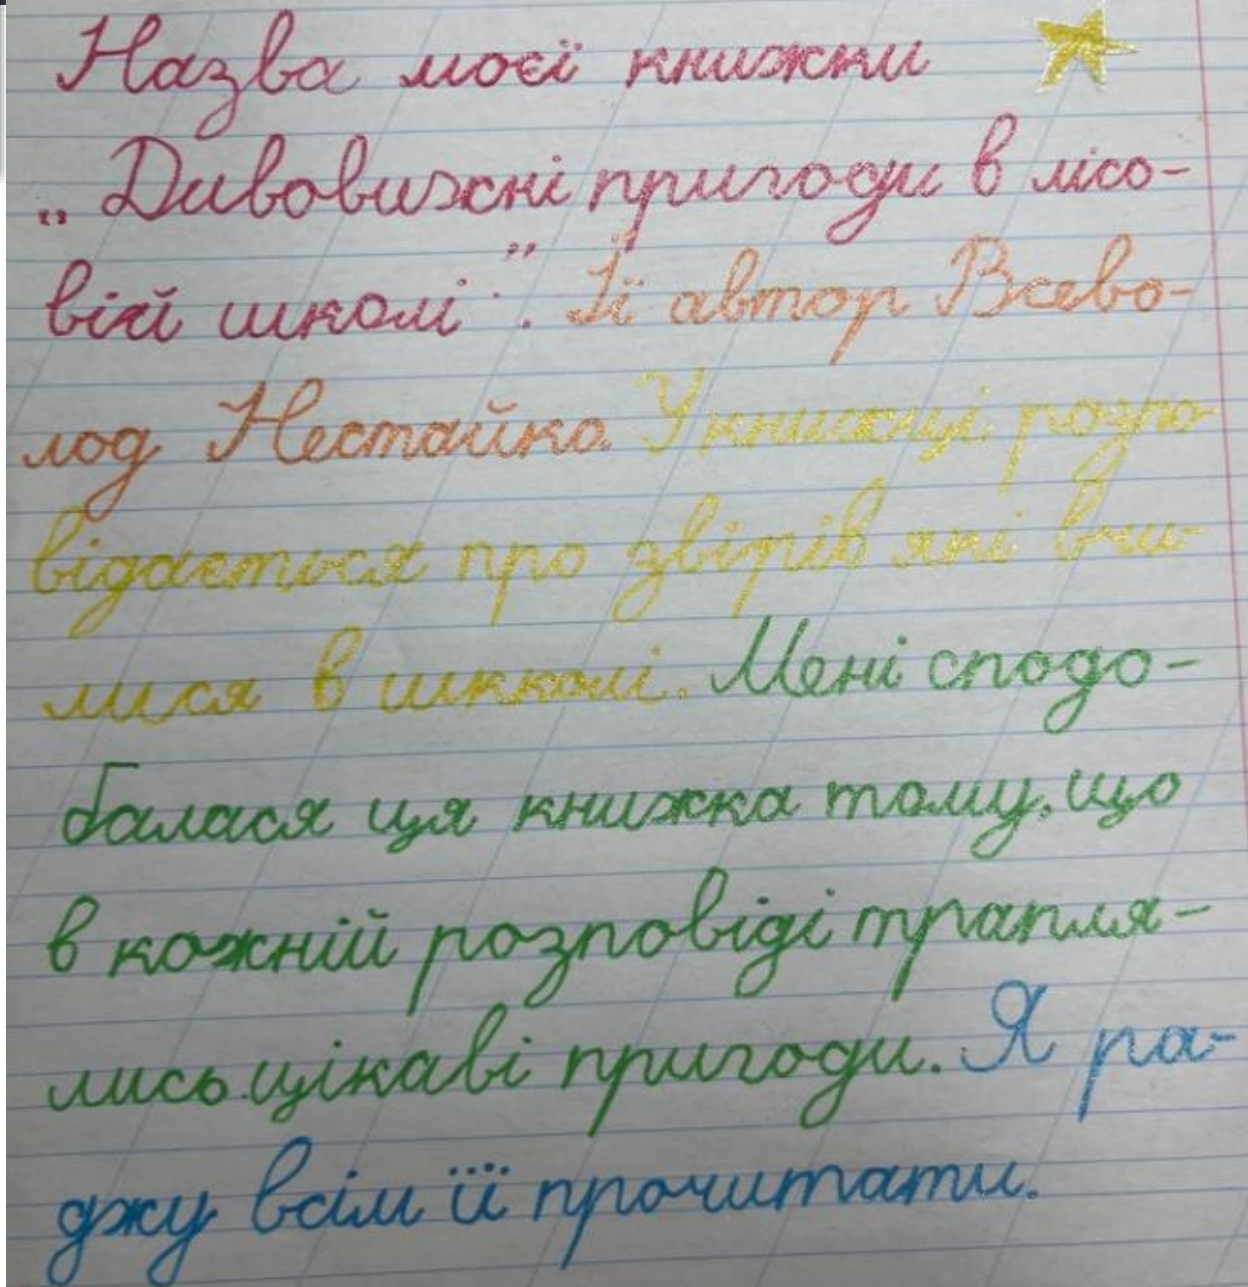 Назва моєї книжки
„Дивовижні пригоди в лісо-
вій школі". Її автор Всево-
лод Нестайко. У книжці розпо-
відається про звірів які вчи-
лися в шкколі. Мені сподо-
балася ця книжка тому, що
в кожній розповіді трапля-
лись цікаві пригоди. Я ра-
джу всім її прочитати.